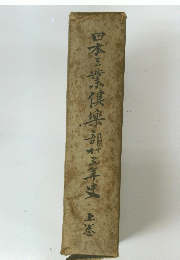 日本工業倶楽部廿五年史 上巻